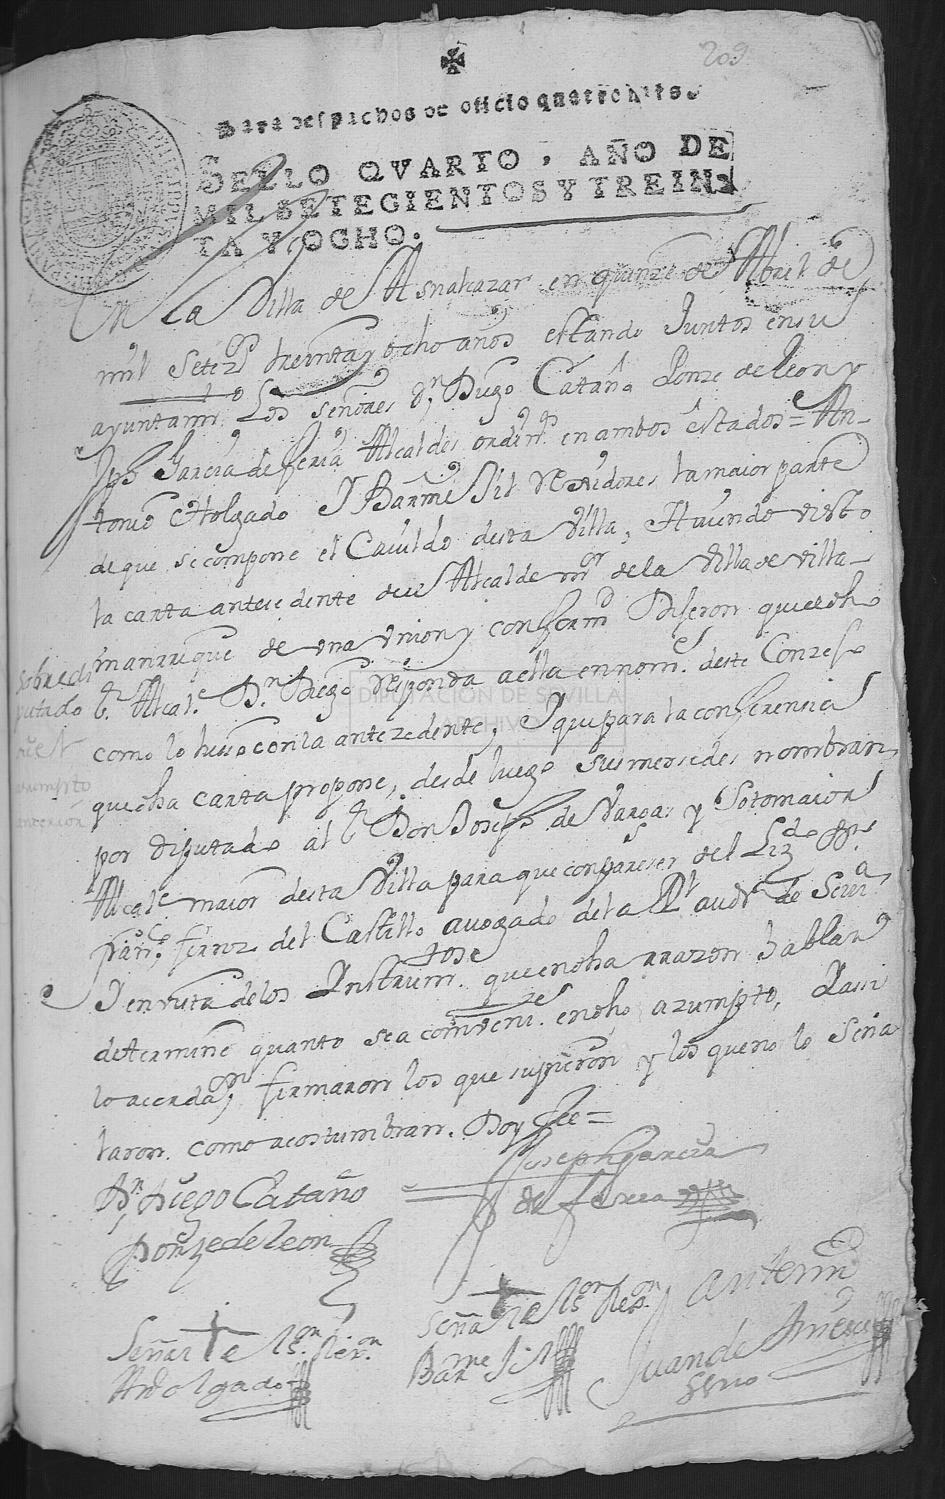 209
Para despachos de oficio quatro mrs.
SELLO QVARTO, AÑO DE
MIL SETECIENTOS Y TREIN
TA Y OCHO.
En la Villa de Asnalcazar en quinze de Abril de
mil Setezs treinta y ocho años estando Juntos en su
ayuntamto Los señores Dn Diego Cataño Ponze de leon y
Jph Garcia de feria Alcaldes ordins en ambos estados = An-
tonio Holgado Y Barme Jil Rexidores la maior parte
de que se compone el Cavildo desta Villa, Haviendo visto
la carta antesedente del Alcalde mr de la Villa de Villa-
manrrique de una union y conformd Dijeron que el dho
Sr Alcale Dn Diego responda a ella en nome deste Conzejo
sobre di
putado
como lo hisso con la antezedente, Y que para la conferencia
que dha carta propone, desde luego sus mersedes nombran
asumpto
anterior
por diputado al Sr Don Joseph de Vargas y Sotomaior
Alcale maior desta Villa para que con pareser del Lizdo Dn
Franco ferroz del Castillo avogado de la Rl audia de Seva
Y en vista de los Instrumtos que en dha rrazon hablan
determine quanto sea combenite en dho asumpto, Y assi
lo acordaron, firmaron los que supieron y los que no lo Seña
laron como acostumbran. Doy fee =
Dn Diego Cataño
Ponze de leon
Joseph Garcia
de feria
Señal de Anton
Holgado
Señal de
Barme Jil
Ante mi
Juan de
ssno
DIPUTACIÓN DE SEVILLA
ARCHIVO